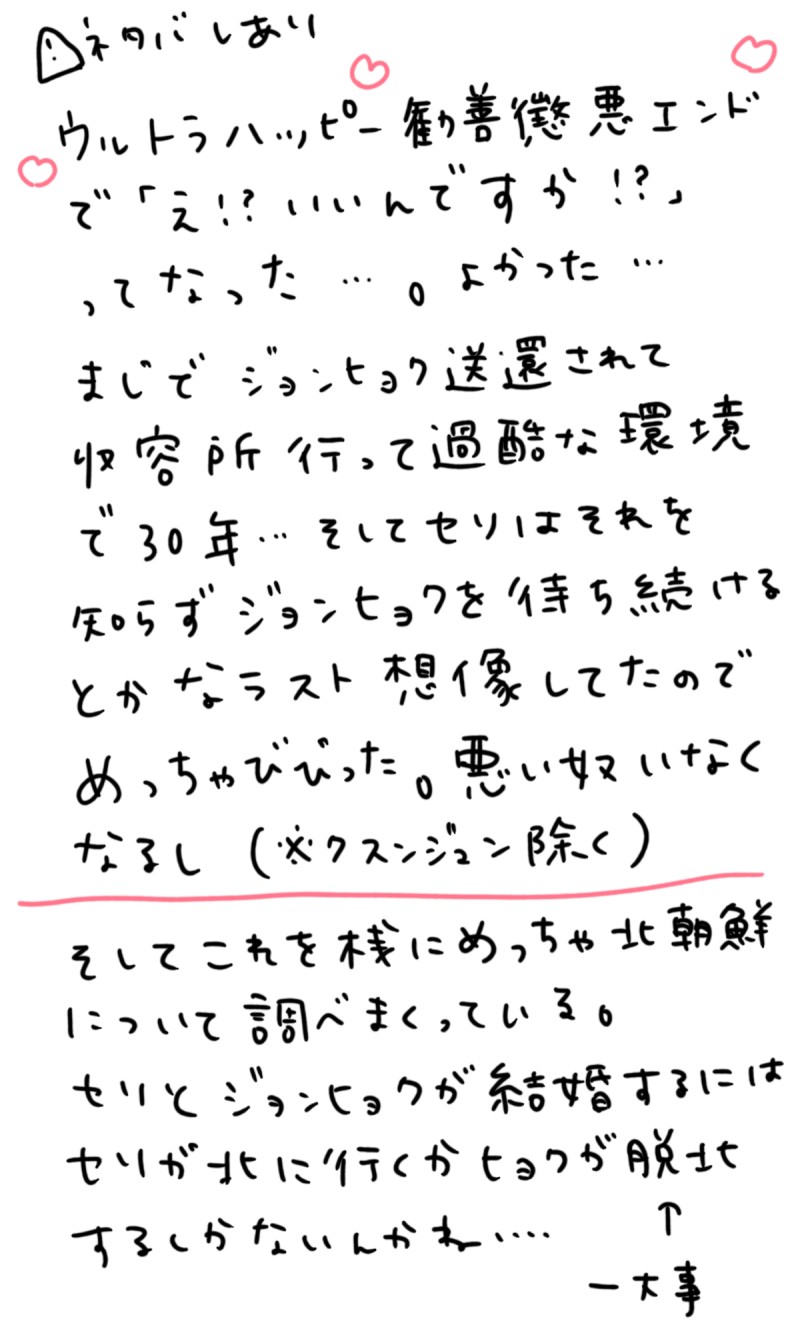 ⚠ネタバレあり
ウルトラハッピー勧善懲悪エンド
で「え!?いいんですか!?」
ってなった…。よかった…
まじでジョンヒョク送還されて
収容所行って過酷な環境
で30年…そしてセリはそれを
知らずジョンヒョクを待ち続ける
とかなラスト想像してたので
めっちゃびびった。悪い奴いなく
なるし(※クスンジュン除く)
そしてこれを桟にめっちゃ北朝鮮
について調べまくっている。
セリとジョンヒョクが結婚するには
セリが北に行くかヒョクが脱北
するしかないんかね....
↑
一大事